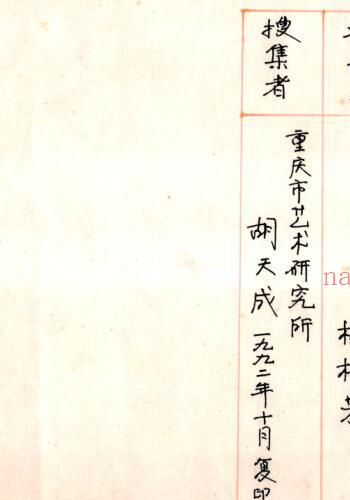 搜集者
重庆市艺术研究所
胡天成 一九九二年十月复印